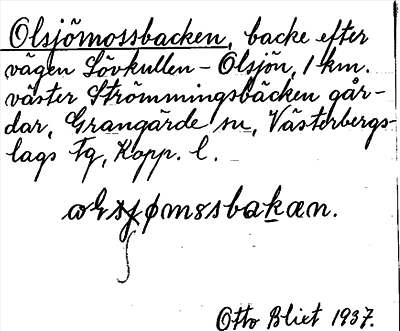 Olsjömossbacken, backe efter
vägen Lövkullen - Olsjön, 1 km.
väster Strömmingsbäcken går-
dar, Grangärde sn, Västerbergs-
lags Fg, Kopp. l.
Otto Blixt 1937.